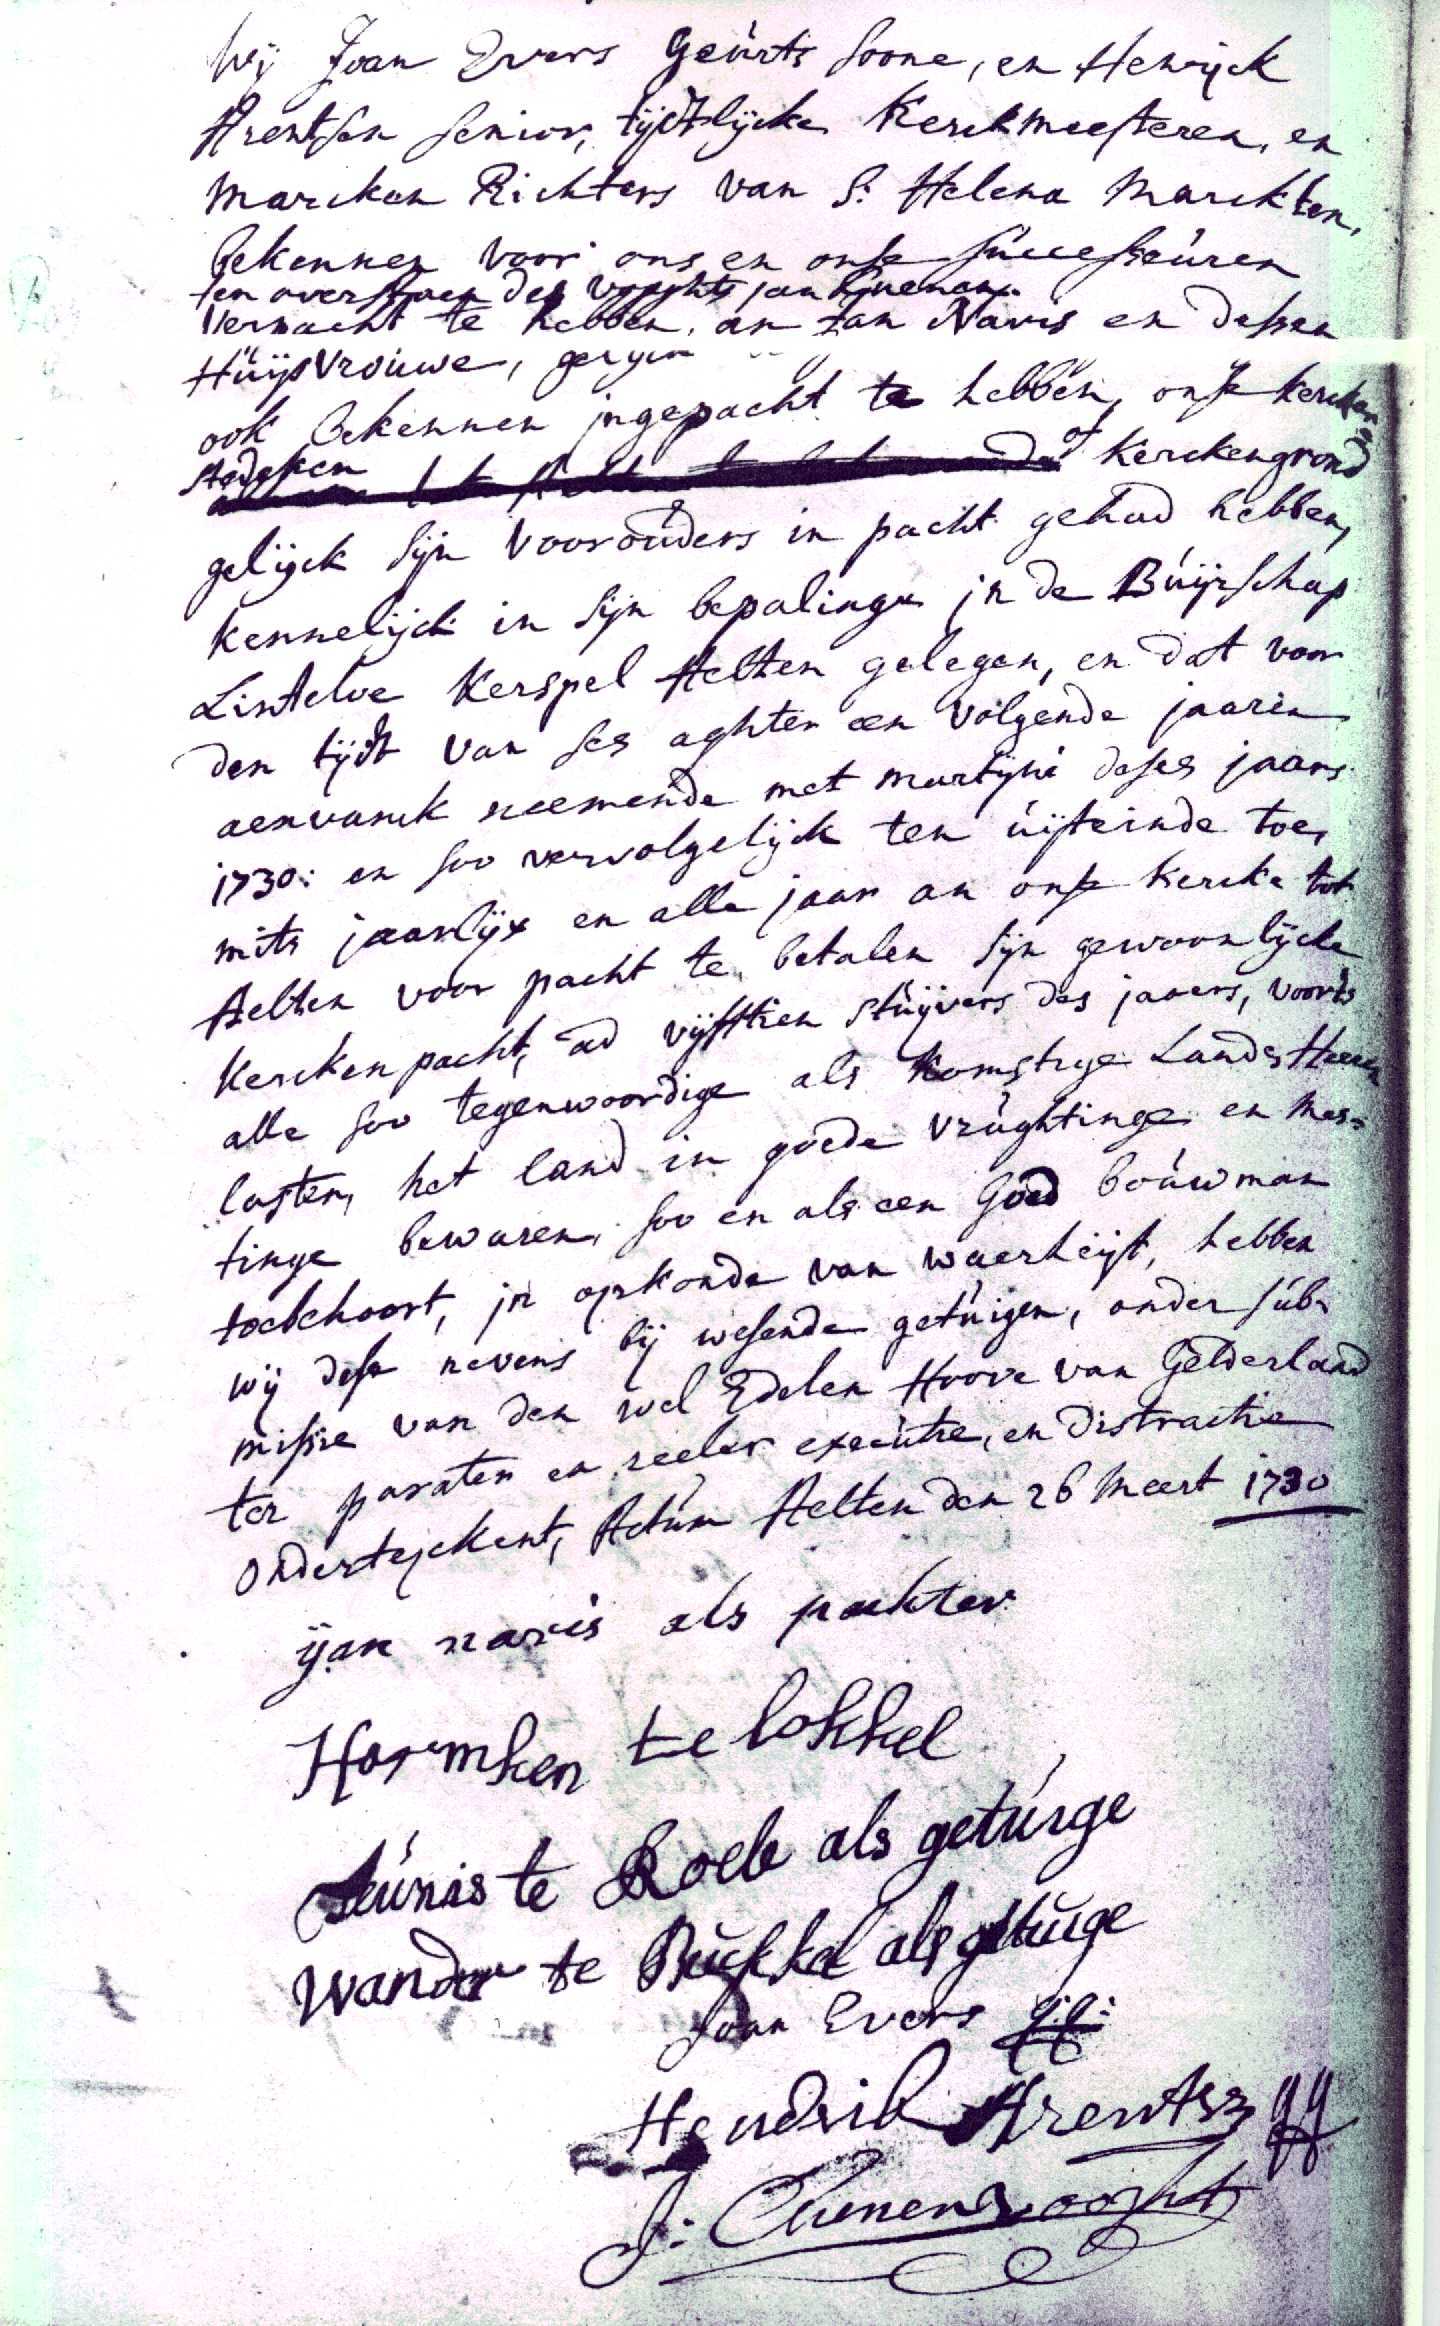 Wij Joan Evers Geúrts soone, en Henrijck
Arentsen senior, tijdtlijcke Kerckmeesteren, en
Marcken Richters van S: Helena Marckten,
bekennen voor ons en onse súccesseúren
ten overstaen des Vooghts jan
verpacht te hebben, an Jan Navis en dessen
Húijsvroúwe, gelijck
ook bekennen ingepacht te hebben, onse kercken
stedeken of Kerckengrond
gelijck sijn vooroúders in pacht gehad hebben,
kennelijck in sijn bepalinge in de Búijrschap
Lintelve Kerspel Aelten gelegen, en dat voor
den tijdt van ses aghter een volgende jaaren
aenvanck neemende met martijni deses jaars
1730: en soo vervolgelijck ten úijteinde toe,
mits jaarlijx en alle jaar an onse kercke tot
Aelten voor pacht te betalen sijn gewoonlijcke
Kerckenpacht, ad vijfftien stúijvers des jaaers, voorts
alle soo tegenwoordige als komstige Lands Heeren
lasten, het land in goede vrúghtinge en mes=
tinge bewaren, soo en als een goed boúwman
toebehoort, in oprkonde van waerheijt, hebben
wij dese nevens bij wesende getúigen, onder súb-
missie van den wel Edelen Hoove van Gelderland
ter paraten en reeler execútie, en distractie
ondertejckent, Actúm Aelten den 26 Meert 1730
ijan navis als pachter
Harmken te lokkel
teúnis te Roele als getúige
Wander te Búkkel als getúige
Joan Evers qq:
Hendrik Arentsz qq
J: